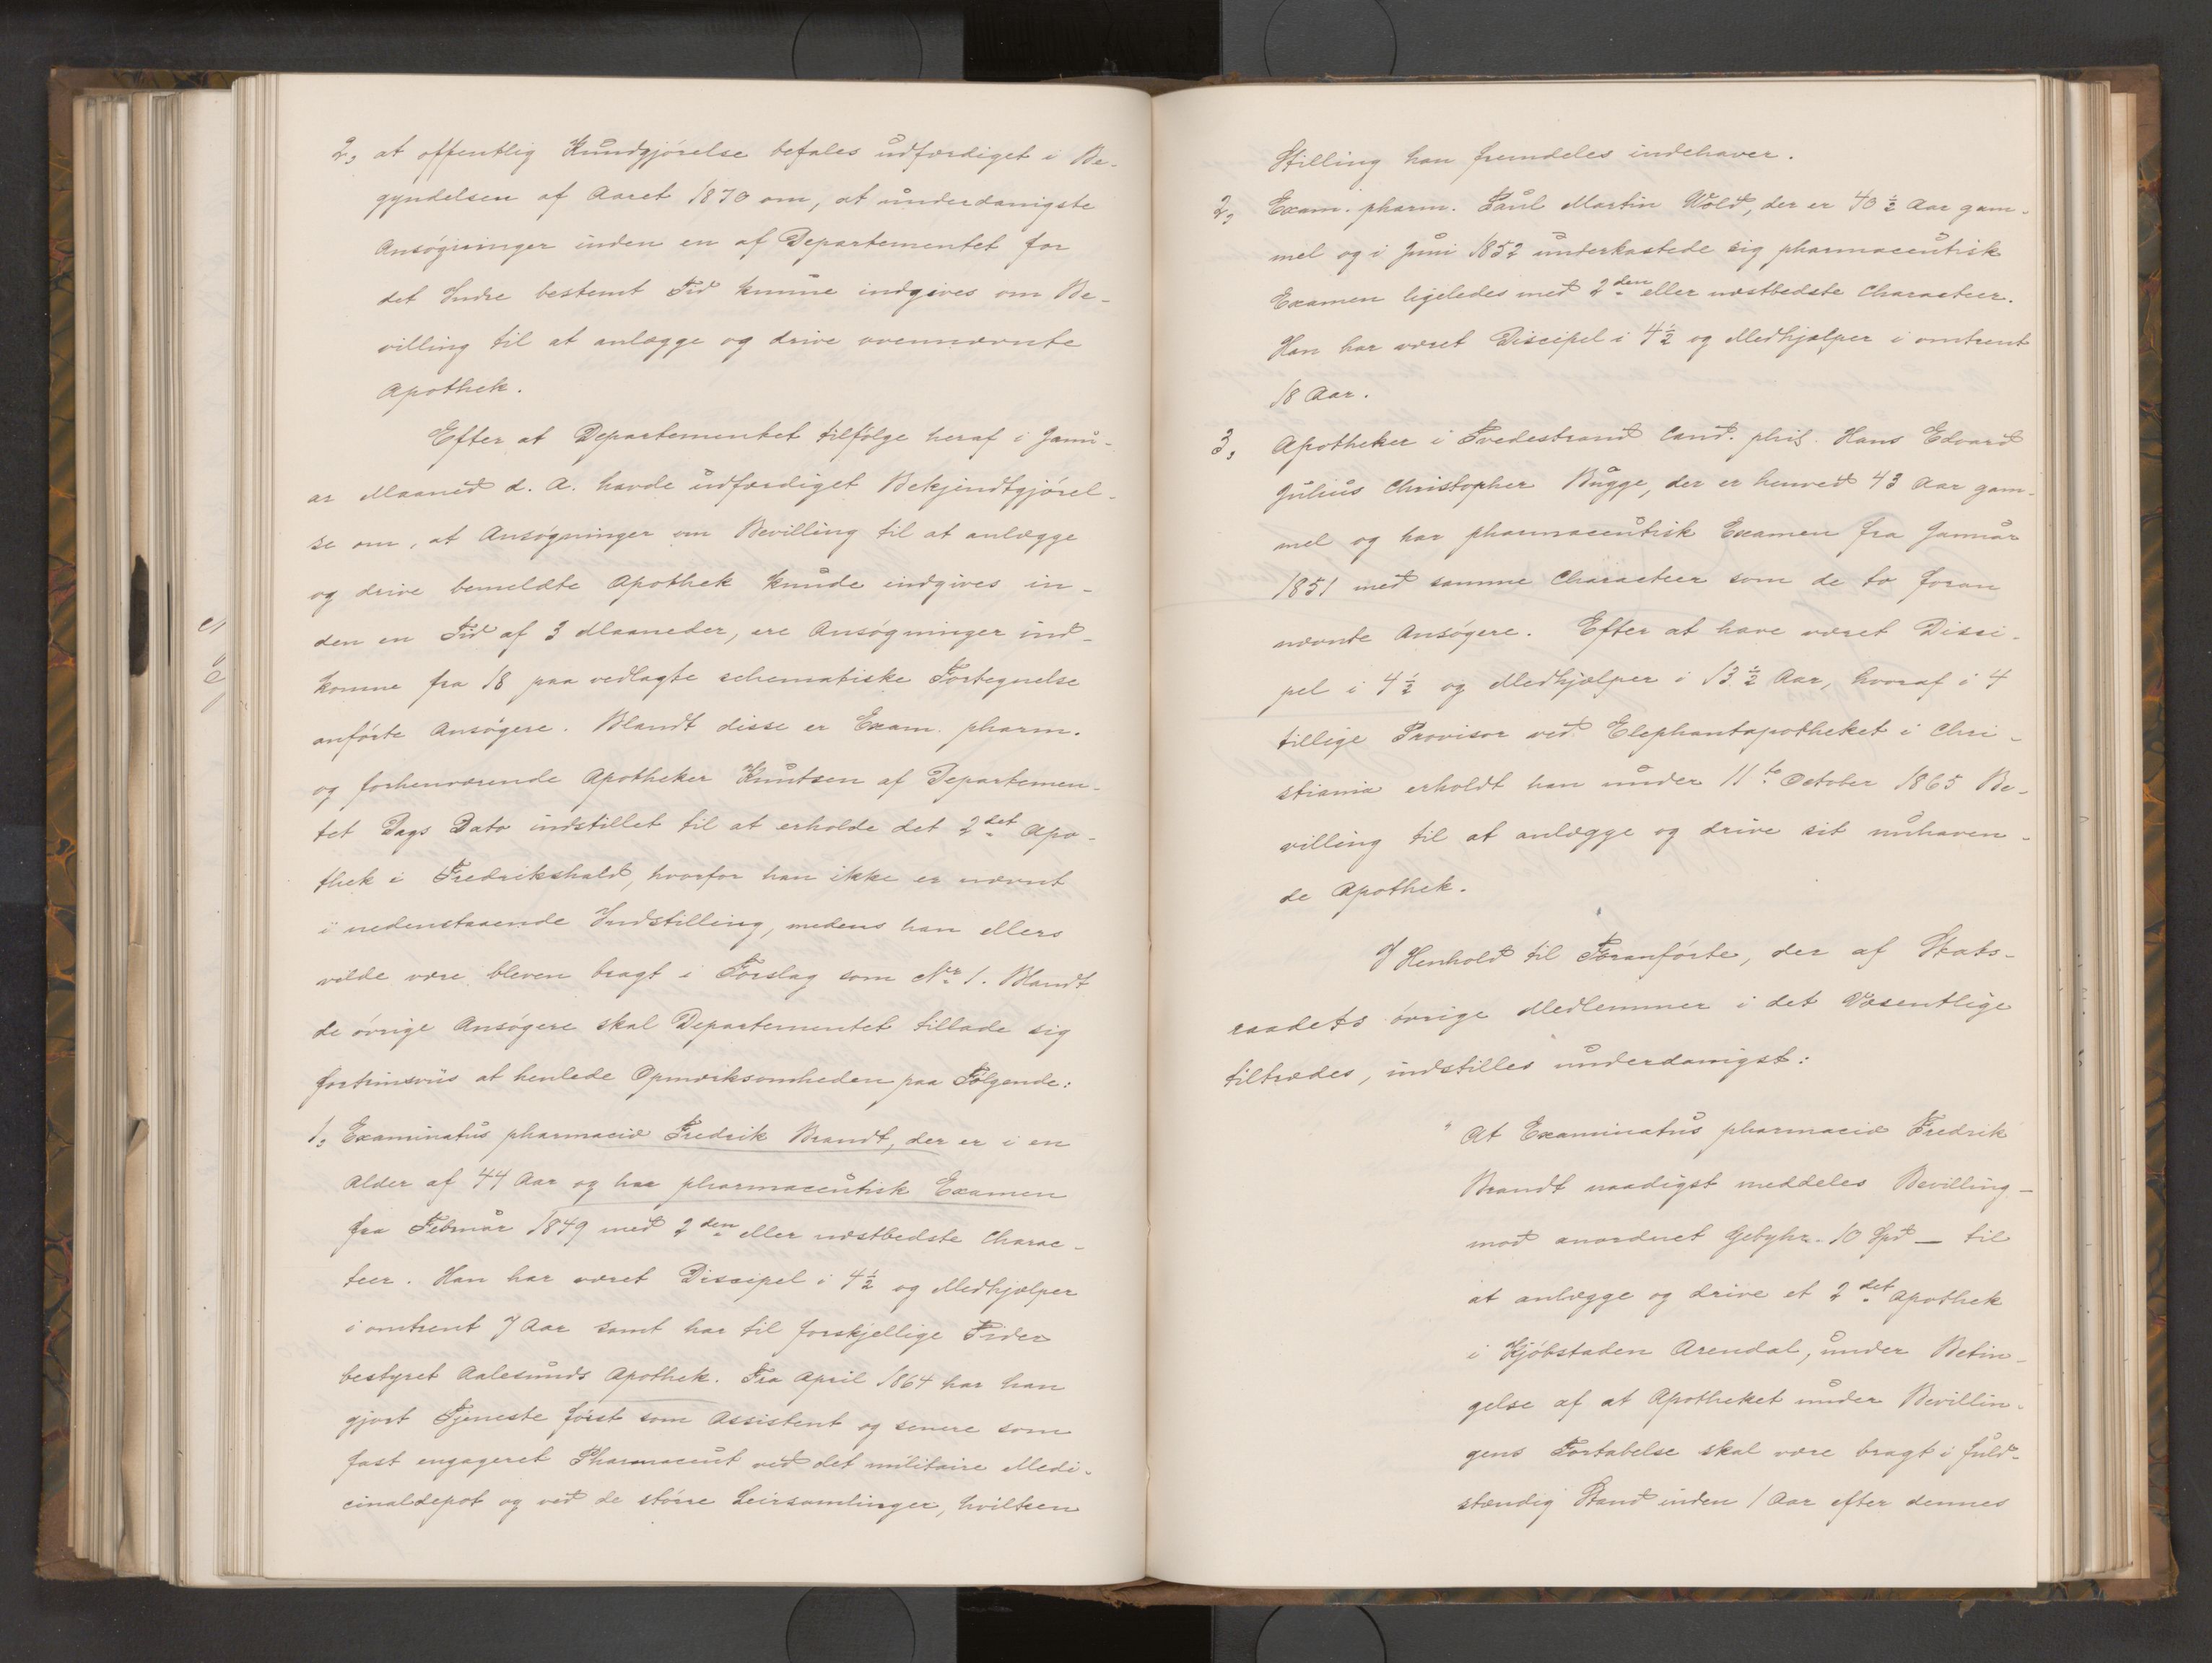 2, at offentlig Kundgjörelse befales udfærdiget i Be-
gyndelsen af Aaret 1870 om, at underdanigste
Ansögninger inden en af Departementet for
det Indre bestemt Tid kunne indgives om Be-
villing til at anlægge og drive ovennævnte
Apothek.
Efter at Departementet tilfölge heraf i Janu-
ar Maaned d. A. havde udfærdiget Bekjendtgjörel-
se om, at Ansögninger om Bevilling til at anlægge
og drive bemeldte Apothek kunde indgives in-
den en Tid af 3 Maaneder, ere Ansögninger ind-
komne fra 18 paa vedlagte schematiske Fortegnelse
anförte Ansögere. Blandt disse er Exam. pharm.
og forhenværende Apotheker Knutsen af Departemen-
tet Dags Dato indstillet til at erholde det 2det Apo-
thek i Fredrikshald, hvorfor han ikke er nævnt
i nedenstaaende Indstilling, medens han ellers
vilde være bleven bragt i Forslag som No 1. Blandt
de övrige Ansögere skal Departementet tillade sig
fortrinsviis at henlede Opmærksomheden paa Fölgende:
1, Examinatus pharmaciæ Fredrik Brandt, der er i en
Alder af 44 Aar og har pharmaceutisk Examen
fra Februar 1849 med 2den eller næstbedste Charac-
teer. Han har været Discipel i 4½ og Medhjælper
i omtrent 7 Aar samt har til forskjellige Tider
bestyret Aalesunds Apothek. Fra April 1864 har han
gjort Tjeneste först som Assistent og senere som
fast engageret Pharmaceut ved det militaire Medi-
cinaldepot og ved de större Leirsamlinger, hvilken
Stilling han fremdeles indehaver.
2, Exam. pharm. Paul Martin Wold, der er 40½ Aar gam-
mel og i Juni 1852 underkastede sig pharmaceutisk
Examen ligeledes med 2den eller næstbedste Characteer.
Han har været Discipel i 4½ og Medhjælper i omtrent
18 Aar.
3, Apotheker i Tvedestrand Cand. phil. Hans Edvard
Julius Christopher Bugge, der er henved 43 Aar gam-
mel og har pharmaceutisk Examen fra Januar
1851 med samme Characteer som de to foran
nævnte Ansögere. Efter at have været Disci-
pel i 4½ og Medhjælper i 13½ Aar, hvoraf i 4
tillige Provisor ved Elephantapotheket i Chri-
stiania erholdt han under 11te October 1865 Be-
villing til at anlægge og drive sit nuhaven-
de Apothek.
I Henhold til Foranförte, der af Stats-
raadets övrige Medlemmer i det Væsentlige
tiltrædes, indstilles underdanigst:
" At Examinatus pharmaciæ Fredrik
Brandt naadigst meddeles Bevilling -
mod anordnet Gebyhr 10 Spd - til
at anlægge og drive et 2det Apothek
i Kjöbstaden Arendal, under Betin-
gelse af at Apotheket under Bevillin-
gens Fortabelse skal være bragt i fuld-
stændig Stand inden 1 Aar efter dennes